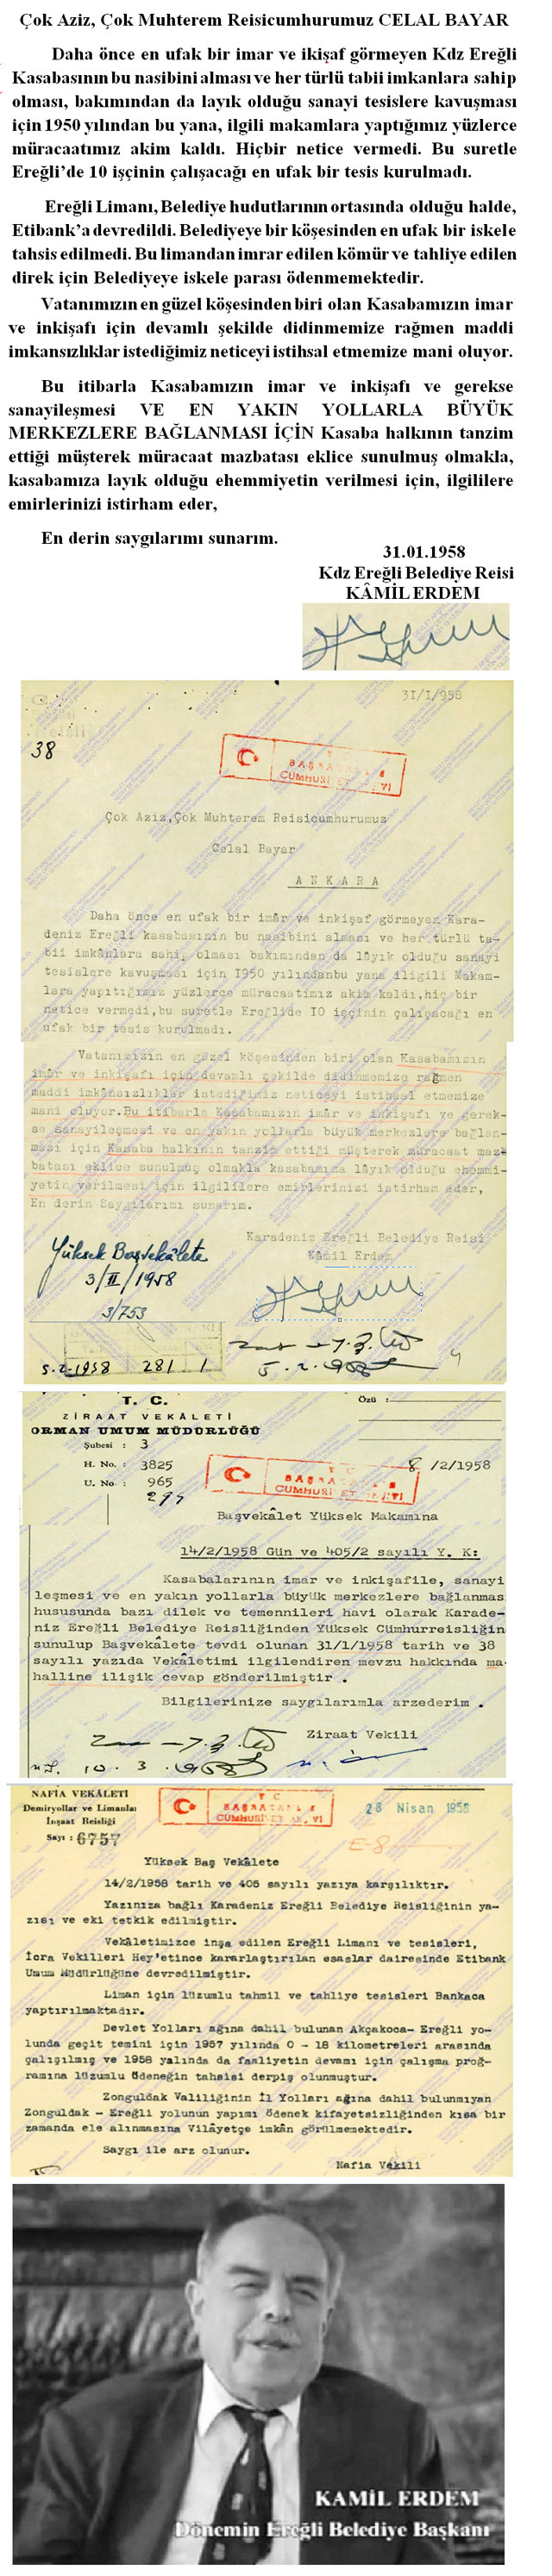 Çok Aziz, Çok Muhterem Reisicumhurumuz CELAL BAYAR
Daha önce en ufak bir imar ve ikişaf görmeyen Kdz Ereğli
Kasabasının bu nasibini alması ve her türlü tabii imkanlara sahip
olması, bakımından da layık olduğu sanayi tesislere kavuşması
için 1950 yılından bu yana, ilgili makamlara yaptığımız yüzlerce
müracaatımız akim kaldı. Hiçbir netice vermedi. Bu suretle
Ereğli’de 10 işçinin çalışacağı en ufak bir tesis kurulmadı.
Ereğli Limanı, Belediye hudutlarının ortasında olduğu halde,
Etibank’a devredildi. Belediyeye bir köşesinden en ufak bir iskele
tahsis edilmedi. Bu limandan imrar edilen kömür ve tahliye edilen
direk için Belediyeye iskele parası ödenmemektedir.
Vatanımızın en güzel köşesinden biri olan Kasabamızın imar
ve inkişafı için devamlı şekilde didinmemize rağmen maddi
imkansızlıklar istediğimiz neticeyi istihsal etmemize mani oluyor.
Bu itibarla Kasabamızın imar ve inkişafı ve gerekse
sanayileşmesi VE EN YAKIN YOLLARLA BÜYÜK
MERKEZLERE BAĞLANMASI İÇİN Kasaba halkının tanzim
ettiği müşterek müracaat mazbatası eklice sunulmuş olmakla,
kasabamıza layık olduğu ehemmiyetin verilmesi için, ilgililere
emirlerinizi istirham eder,
En derin saygılarımı sunarım.
31.01.1958
Kdz Ereğli Belediye Reisi
KÂMİL ERDEM
31/I/958
38
Çok Aziz,Çok Muhterem Reisicumhurumuz
Celal Bayar
A N K A R A
Daha önce en ufak bir imâr ve inkişaf görmeyen Kara-
deniz Ereğli kasabasının bu nasibini alması ve her türlü ta-
bii imkânlara sahi, olması bakımından da lâyık olduğu sanayi
tesislere kavuşması için I950 yılındanbu yana iligili Makam-
lara yapıtığımız yüzlerce müracaatımız akim kaldı,hiç bir
netice vermedi,bu suretle Ereğlide IO işçinin çalışacağı en
ufak bir tesis kurulmadı.
Vatanımızın en güzel köşesinden biri olan Kasabamızın
imâr ve inkişafı için devamlı şekilde didinmemize rağmen
maddi imkânsızlıklar istediğimiz neticeyi istihsal etmemize
mani oluyor.Bu itibarla Kasabamızın imâr ve inkişafı ve gerek-
se sanayileşmesi ve en yakın yollarla büyük merkezlere bağlan-
ması için Kasaba halkının tanzim ettiği müşterek müracaat maz-
batası eklice sunulmuş olmakla kasabamıza lâyık olduğu ehemmi-
yetin verilmesi için ilgililere emirlerinizi istirham eder,
En derin Saygılarımı sunarım.
Karadeniz Ereğli Belediye Reisi
Kâmil Erdem
Yüksek Başvekâlete
3/II/1958
3/753
5.2.1958 281 1
T. C.
ZİRAAT VEKÂLETİ
ORMAN UMUM MÜDÜRLÜĞÜ
Özü :
Şubesi : 3
H. No. : 3825
U. No : 965
8 /2/1958
Başvekâlet Yüksek Makamına
14/2/1958 Gün ve 405/2 sayılı Y. K:
Kasabalarının imar ve inkişafile, sanayi
leşmesi ve en yakın yollarla büyük merkezlere bağlanmas
hususunda bazı dilek ve temennileri havi olarak Karade-
niz Ereğli Belediye Reisliğinden Yüksek Cümhurreisliğin
sunulup Başvekâlete tevdi olunan 31/1/1958 tarih ve 38
sayılı yazıda Vekâletimi ilgilendiren mevzu hakkında ma-
halline ilişik cevap gönderilmiştir .
Bilgilerinize saygılarımla arzederim .
Ziraat Vekili
10 . 3 . 958
NAFIA VEKÂLETİ
Demiryollar ve Limanlar
İnşaat Reisliği
Sayı : 6757
28 Nisan 1958
E-8
Yüksek Baş Vekâlete
14/2/1958 tarih ve 405 sayılı yazıya karşılıktır.
Yazınıza bağlı Karadeniz Ereğli Belediye Reisliğinin ya-
zısı ve eki tetkik edilmiştir.
Vekâletimizce inşa edilen Ereğli Limanı ve tesisleri,
İcra Vekilleri Hey'etince kararlaştırılan esaslar dairesinde Etibank
Umum Müdürlüğüne devredilmiştir.
Liman için lüzumlu tahmil ve tahliye tesisleri Bankaca
yaptırılmaktadır.
Devlet Yolları ağına dahil bulunan Akçakoca- Ereğli yo-
lunda geçit temini için 1957 yılında 0 - 18 kilometreleri arasında
çalışılmış ve 1958 yalında da faaliyetin devamı için çalışma proğ-
ramına lüzumlu ödeneğin tahsisi derpiş olunmuştur.
Zonguldak Valiliğinin İl Yolları ağına dahil bulunmıyan
Zonguldak - Ereğli yolunun yapımı ödenek kifayetsizliğinden kısa bir
zamanda ele alınmasına Vilâyetçe imkân görülmemektedir.
Saygı ile arz olunur.
Nafia Vekili
KAMİL ERDEM
Dönemin Ereğli Belediye Başkanı